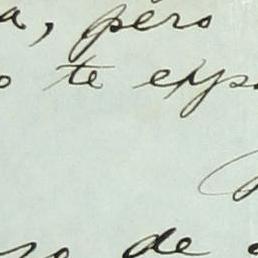 a, pero
o te exp
de